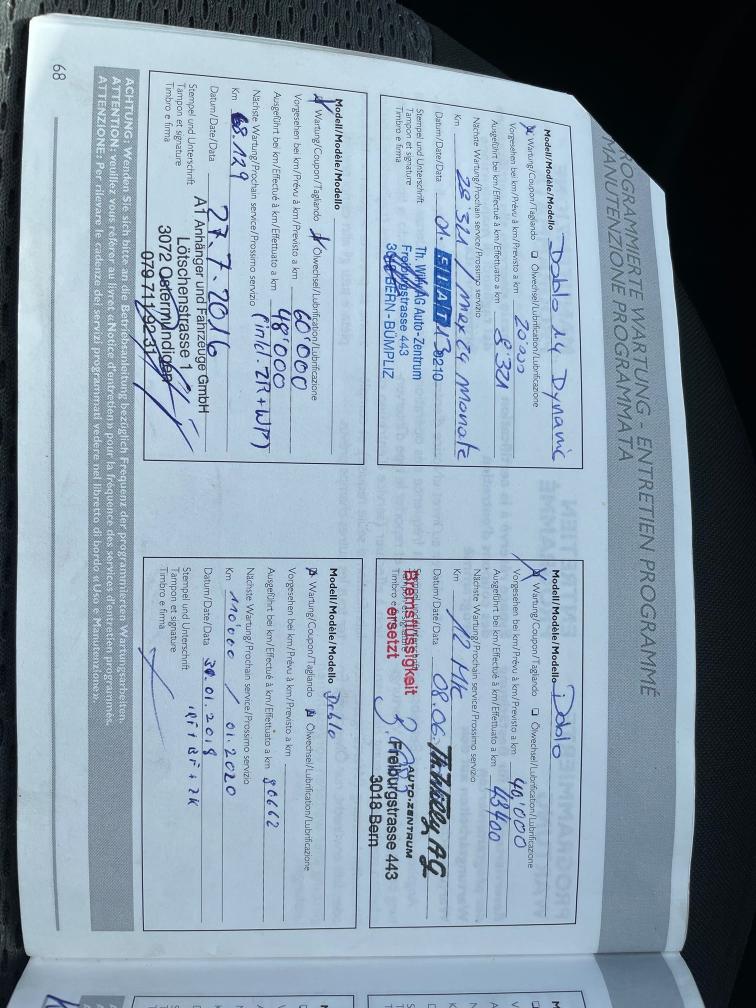 PROGRAMMIERTE WARTUNG - ENTRETIEN PROGRAMMÉ
MANUTENZIONE PROGRAMMATA
Modell/Modèle/Modello Doblo 1.4 Dynamic
Wartung/Coupon/Tagliando Ölwechsel/Lubrification/Lubrificazione
Vorgesehen bei km/Prévu à km/Previsto a km
Ausgeführt bei km/Effectué à km/Effettuato a km 8'321
Nächste Wartung/Prochain service/Prossimo servizio
Km 28'321 / max 24 Monate
Datum/Date/Data 01.
FIAT
Stempel und Unterschrift
Tampon et signature
Timbro e firma
Th. Willy AG Auto-Zentrum
Freiburgstrasse 443
BERN-BÜMPLIZ
Modell/Modèle/Modello Doblo
Wartung/Coupon/Tagliando Ölwechsel/Lubrification/Lubrificazione
Vorgesehen bei km/Prévu à km/Previsto a km 40'000
Ausgeführt bei km/Effectué à km/Effettuato a km 43400
Nächste Wartung/Prochain service/Prossimo servizio
Km
Datum/Date/Data 08.06.
Timbro e
Bremsflüssigkeit
ersetzt
Th. Willy AG
AUTO-ZENTRUM
Freiburgstrasse 443
3018 Bern
Modell/Modèle/Modello
Wartung/Coupon/Tagliando Ölwechsel/Lubrification/Lubrificazione
Vorgesehen bei km/Prévu à km/Previsto a km 60'000
Ausgeführt bei km/Effectué à km/Effettuato a km 48'000
Nächste Wartung/Prochain service/Prossimo servizio (inkl. ZR + WP)
Km 68.129
Datum/Date/Data 27.7.2016
Stempel und Unterschrift
Tampon et signature
Timbro e firma
A1 Anhänger und Fahrzeuge GmbH
Lötschenstrasse 1
3072 Ostermundigen
079 711 92 31
Modell/Modèle/Modello Doblo
Wartung/Coupon/Tagliando Ölwechsel/Lubrification/Lubrificazione
Vorgesehen bei km/Prévu à km/Previsto a km
Ausgeführt bei km/Effectué à km/Effettuato a km 90662
Nächste Wartung/Prochain service/Prossimo servizio
Km 110000 / 01.2020
Datum/Date/Data 01.2018
Stempel und Unterschrift
Tampon et signature
Timbro e firma
ACHTUNG: Wenden Sie sich bitte an die Betriebsanleitung bezüglich Frequenz der programmierten Wartungsarbeiten.
ATTENTION: veuillez vous référer au livret «Notice d'entretien» pour la fréquence des services d'entretien programmés.
ATTENZIONE: Per rilevare le cadenze dei servizi programmati vedere nel libretto di bordo «Uso e Manutenzione».
68